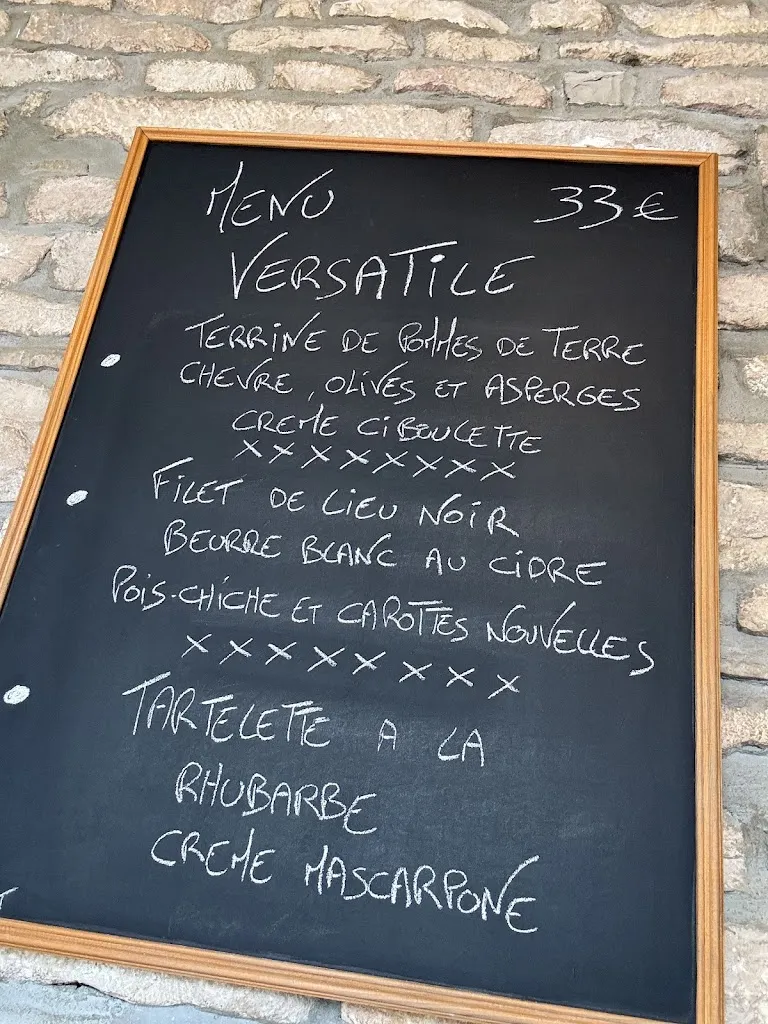 MENU 33€
VERSATILE
TERRINE DE POMMES DE TERRE
CHEVRE, OLIVES ET ASPERGES
CREME CIBOULETTE
XXXXXXXX
FILET DE LIEU NOIR
BEURRE BLANC AU CIDRE
POIS-CHICHE ET CAROTTES NOUVELLES
XXXXXXXX
TARTELETTE A LA
RHUBARBE
CREME MASCARPONE